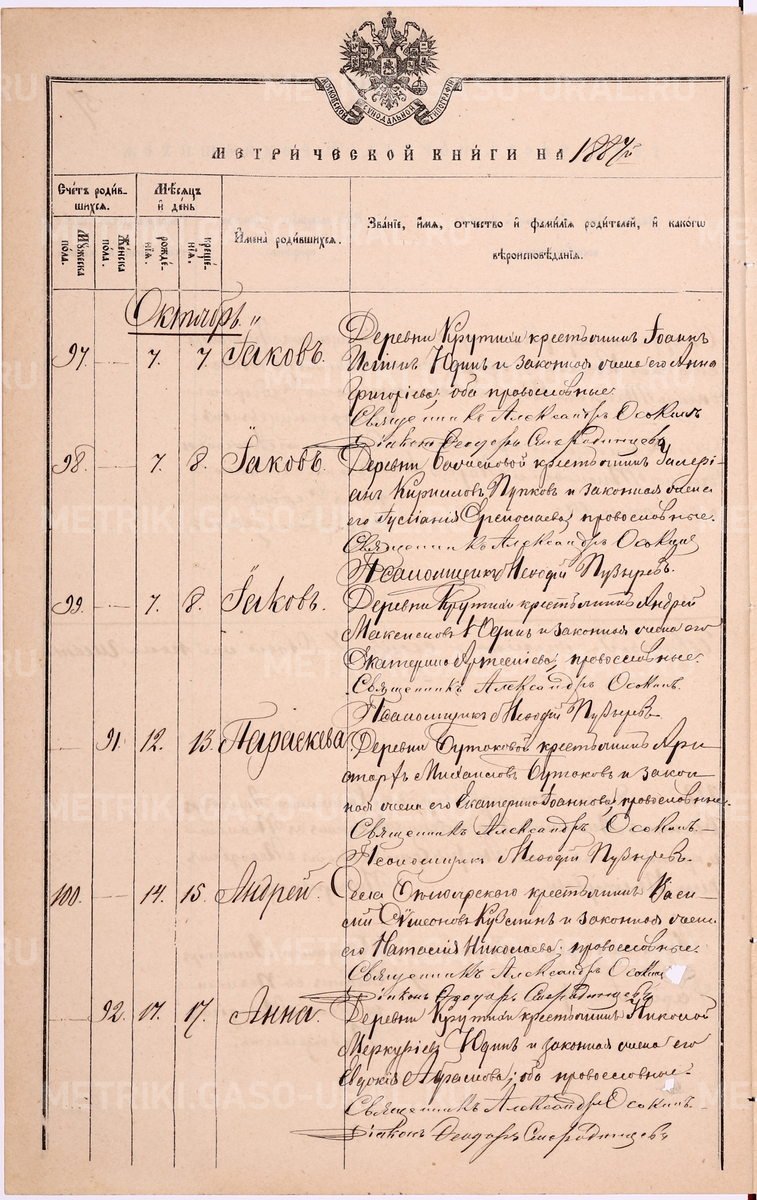 МОСКОВСКОЙ СѴНОДАЛЬНОЙ ТИПОГРАФІИ
МЕТРИ́ЧЕСКОЙ КНИ́ГИ НА 1887й
Сче́тъ роди́в-
шихся.
Мѣ́сяцъ
и҆ де́нь
Мꙋжеска
по́ла.
Же́нска
по́ла.
рожде́-
нїѧ.
креще́-
нїѧ.
И҆мена̀ роди́вшихсѧ.
Зва́нїе, и҆́мѧ, ѻ҆́тчество и҆ фами́лїѧ роди́телей, и҆ како́гѡ
вѣроисповѣ́данїѧ.
Октябрь.
97. 7. 7. Іаковъ. Деревни Крутихи крестьянинъ Іоаннъ
Юдинъ и законная жена его Анна
Григоріева, оба православные.
Священникъ Александръ Осокинъ
Діаконъ Ѳеодоръ Смородинцевъ
98. 7. 8. Іаковъ. Деревни крестьянинъ Валері-
анъ Кириловъ Пупковъ и законная жена
его православные.
Священникъ Александръ Осокинъ
Псаломщикъ Меѳодій Пузыревъ.
99. 7. 8. Іаковъ. Деревни Крутихи крестьянинъ Андрей
Максимовъ Юдинъ и законная жена его
Екатерина Артеміева, православные.
Священникъ Александръ Осокинъ.
Псаломщикъ Меѳодій Пузыревъ
91. 12. 13. Параскева. Деревни Бутаковой крестьянинъ Ари-
стархъ Михайловъ Бутаковъ и закон-
ная жена его Екатерина Іоаннова, православные.
Священникъ Александръ Осокинъ
Псаломщикъ Меѳодій Пузыревъ
100. 14. 15. Андрей. Села Бѣлоярскаго крестьянинъ Васи-
лій Сѵмеоновъ Кузминъ и законная жена
его Наталія Николаева, православные.
Священникъ Александръ Осокинъ
Діаконъ Ѳеодоръ Смородинцевъ
92. 17. 17. Анна. Деревни Крутихи крестьянинъ Николай
Меркуріевъ Юдинъ и законная жена его
Евдокія Абрамова, оба православные.
Священникъ Александръ Осокинъ
Діаконъ Ѳеодоръ Смородинцевъ
METRIKI.GASO-URAL.RU